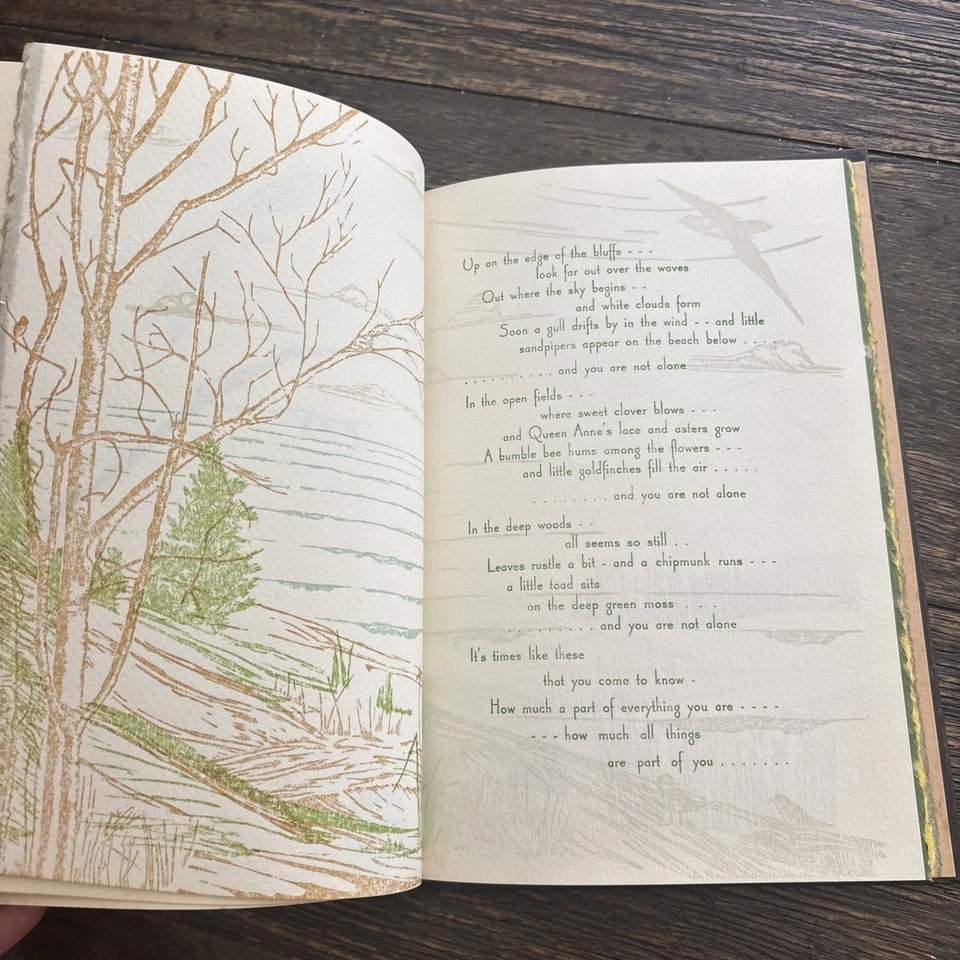 Up on the edge of the bluffs - - -
look far out over the waves
Out where the sky begins - -
and white clouds form
Soon a gull drifts by in the wind - - and little
sandpipers appear on the beach below . . . . .
. . . . . . . . . . and you are not alone
In the open fields - - -
where sweet clover blows - - -
and Queen Anne's lace and asters grow
A bumble bee hums among the flowers - - -
and little goldfinches fill the air . . . . .
. . . . . . . . and you are not alone
In the deep woods - -
all seems so still . .
Leaves rustle a bit - and a chipmunk runs - - -
a little toad sits
on the deep green moss . . .
. . . . . . . . . and you are not alone
It's times like these
that you come to know -
How much a part of everything you are - - - -
- - - how much all things
are part of you . . . . . . .